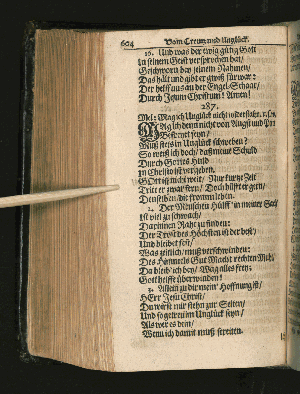 604 Vom Creutz und Unglück.
16. Und was der ewig gütig Gott
in seinem Geist versprochen hat/
Geschworn bey seinem Nahmen/
Das hält und gibt er gwiß für war:
Der helff uns an der Engel-Schaar/
Durch Jesum Christum! Amen!
287.
Mel: Mag ich Unglück nicht widerstahn.
MAg ich denn nicht von Angst und Pein
Befreyet seyn/
Muß stets in Unglück schweben?
So weiß ich doch/ daß meine Schuld
Durch Gottes Huld
in Christo ist vergeben.
Gott ist nicht weit/ Nur kurtze Zeit
Tritt er zwar fern/ Doch hilfft er gern/
Denselben die fromm leben.
2. Der Menschen Hülff in meiner
ist viel zu schwach/
Darinnen Raht zu finden:
Der Trost des Höchsten ist der best/
Und bleibet fest/
Was zeitlich/ muß verschwinden:
Des Himmels Gut Macht rechten Mut/
Da bleib ich bey/ Wag alles frey:
Gott helffe überwinden!
3. Allein zu dir mein Hoffnung ist/
HErr Jesu Christ/
Du wirst mir stehn zur Seiten/
Und so getreu im Unglück seyn/
Als wer es dein/
Wenn ich damit muß streiten.